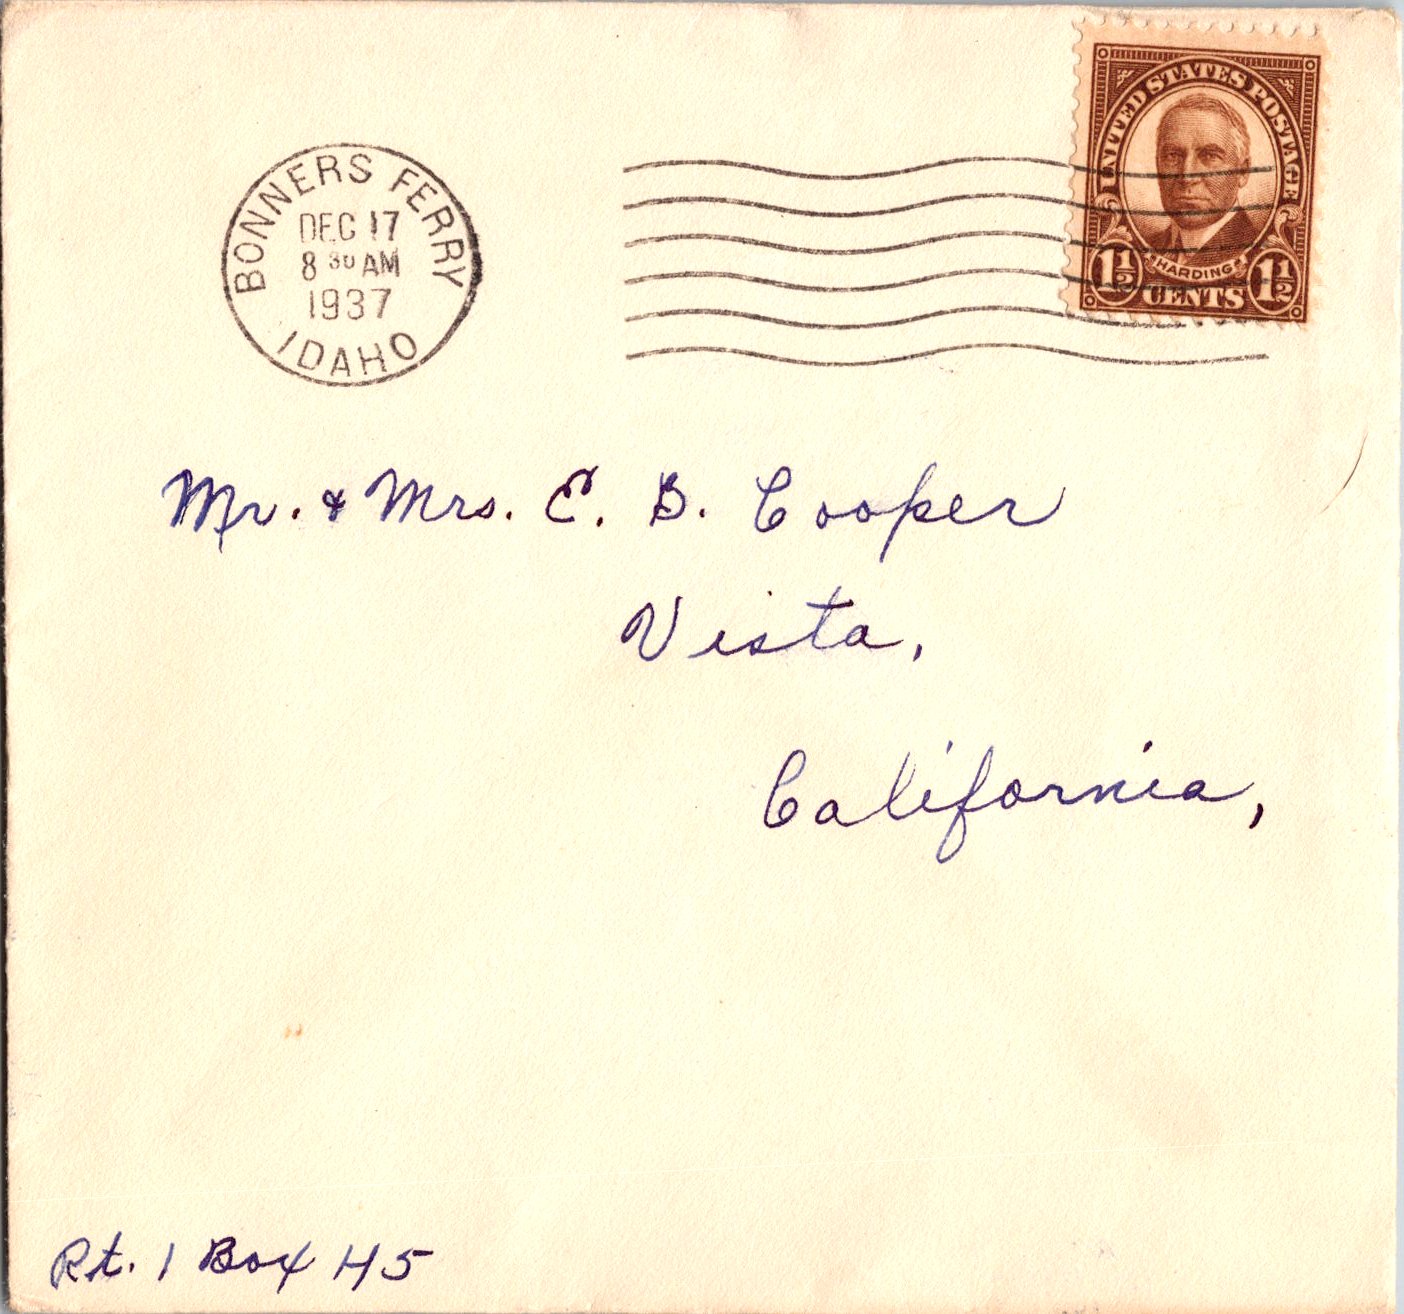 UNITED STATES POSTAGE
HARDING
1½ CENTS 1½
BONNERS FERRY
DEC 17
8 30 AM
1937
IDAHO
Mr. & Mrs. E. B. Cooper
Vista,
California,
Rt. 1 Box 45